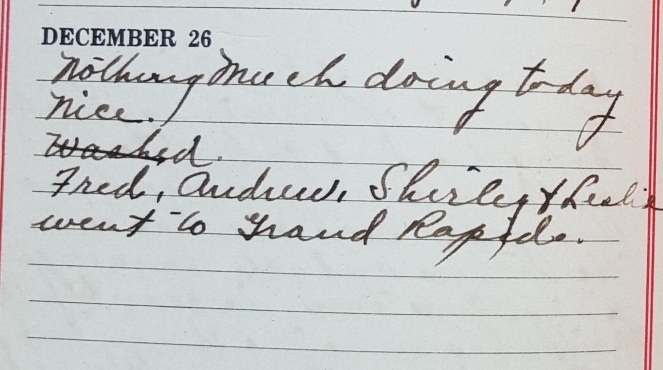 DECEMBER 26
Nothing Much doing today
nice.
Washed.
Fred, Andrew, Shirley & Leslie
went to Grand Rapids.